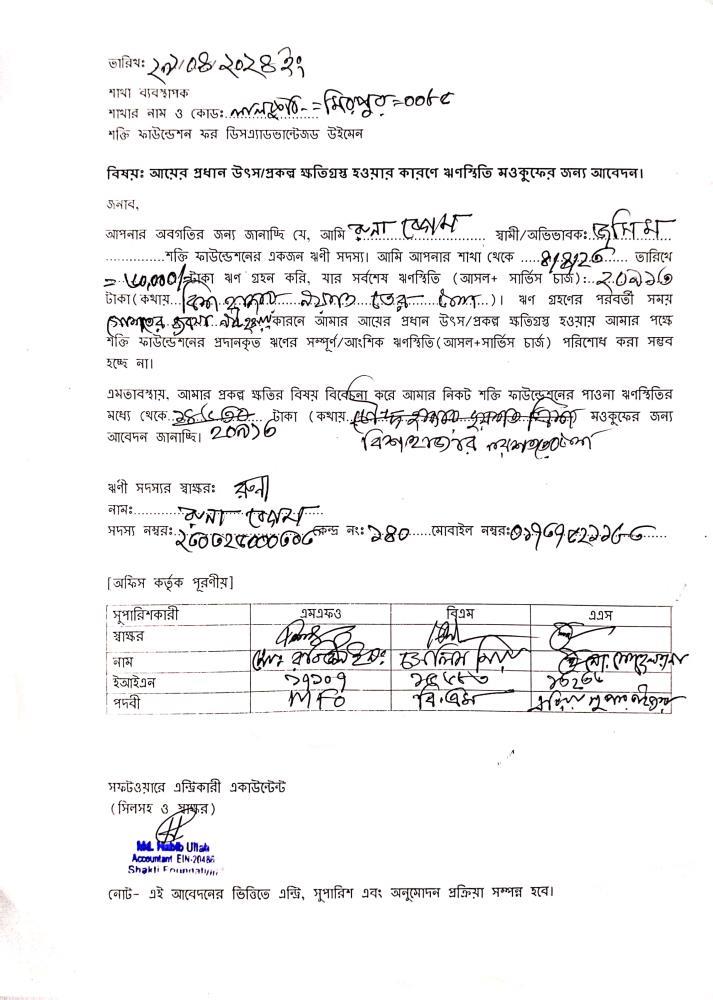 তারিখ: ২৭/০৪/২০২৪ ইং
শাখা ব্যবস্থাপক
শাখার নাম ও কোড: = মিরপুর = ০০৮৫
শক্তি ফাউন্ডেশন ফর ডিসএ্যাডভান্টেজড উইমেন
বিষয়ঃ আয়ের প্রধান উৎস/প্রকল্প ক্ষতিগ্রস্থ হওয়ার কারণে ঋণস্থিতি মওকুফের জন্য আবেদন।
জনাব,
আপনার অবগতির জন্য জানাচ্ছি যে, আমি রুনা বেগম স্বামী/অভিভাবক: জসিম
শক্তি ফাউন্ডেশনের একজন ঋণী সদস্য। আমি আপনার শাখা থেকে ৪/৪/২৩ তারিখে
= ৬০,০০০/= টাকা ঋণ গ্রহন করি, যার সর্বশেষ ঋণস্থিতি (আসল+ সার্ভিস চার্জ): ২০৯১৩
টাকা(কথায় বিশ হাজার নয়শত তের টাকা)। ঋণ গ্রহণের পরবর্তী সময়
কারনে আমার আয়ের প্রধান উৎস/প্রকল্প ক্ষতিগ্রস্থ হওয়ায় আমার পক্ষে
শক্তি ফাউন্ডেশনের প্রদানকৃত ঋণের সম্পূর্ণ/আংশিক ঋণস্থিতি(আসল+সার্ভিস চার্জ) পরিশোধ করা সম্ভব
হচ্ছে না।
এমতাবস্থায়, আমার প্রকল্প ক্ষতির বিষয় বিবেচনা করে আমার নিকট শক্তি ফাউন্ডেশনের পাওনা ঋণস্থিতির
মধ্যে থেকে টাকা (কথায় মওকুফের জন্য
আবেদন জানাচ্ছি। ২০৯১৩ বিশ হাজার নয়শত তের টাকা
ঋণী সদস্যর স্বাক্ষর: রুনা
নাম: রুনা বেগম
সদস্য নম্বর: কেন্দ্র নং: ১৪০ মোবাইল নম্বর:
[অফিস কর্তৃক পূরণীয়]
সুপারিশকারী এমএফও বিএম এএস
স্বাক্ষর
নাম মোঃ সেলিম মিয়া
ইআইএন ১৭১০৭
পদবী MFO বি.এম
সফটওয়ারে এন্ট্রিকারী একাউন্টেন্ট
(সিলসহ ও স্বাক্ষর)
Md. Habib Ullah
Accountant EIN-20486
Shakti Foundation
নোট- এই আবেদনের ভিত্তিতে এন্ট্রি, সুপারিশ এবং অনুমোদন প্রক্রিয়া সম্পন্ন হবে।